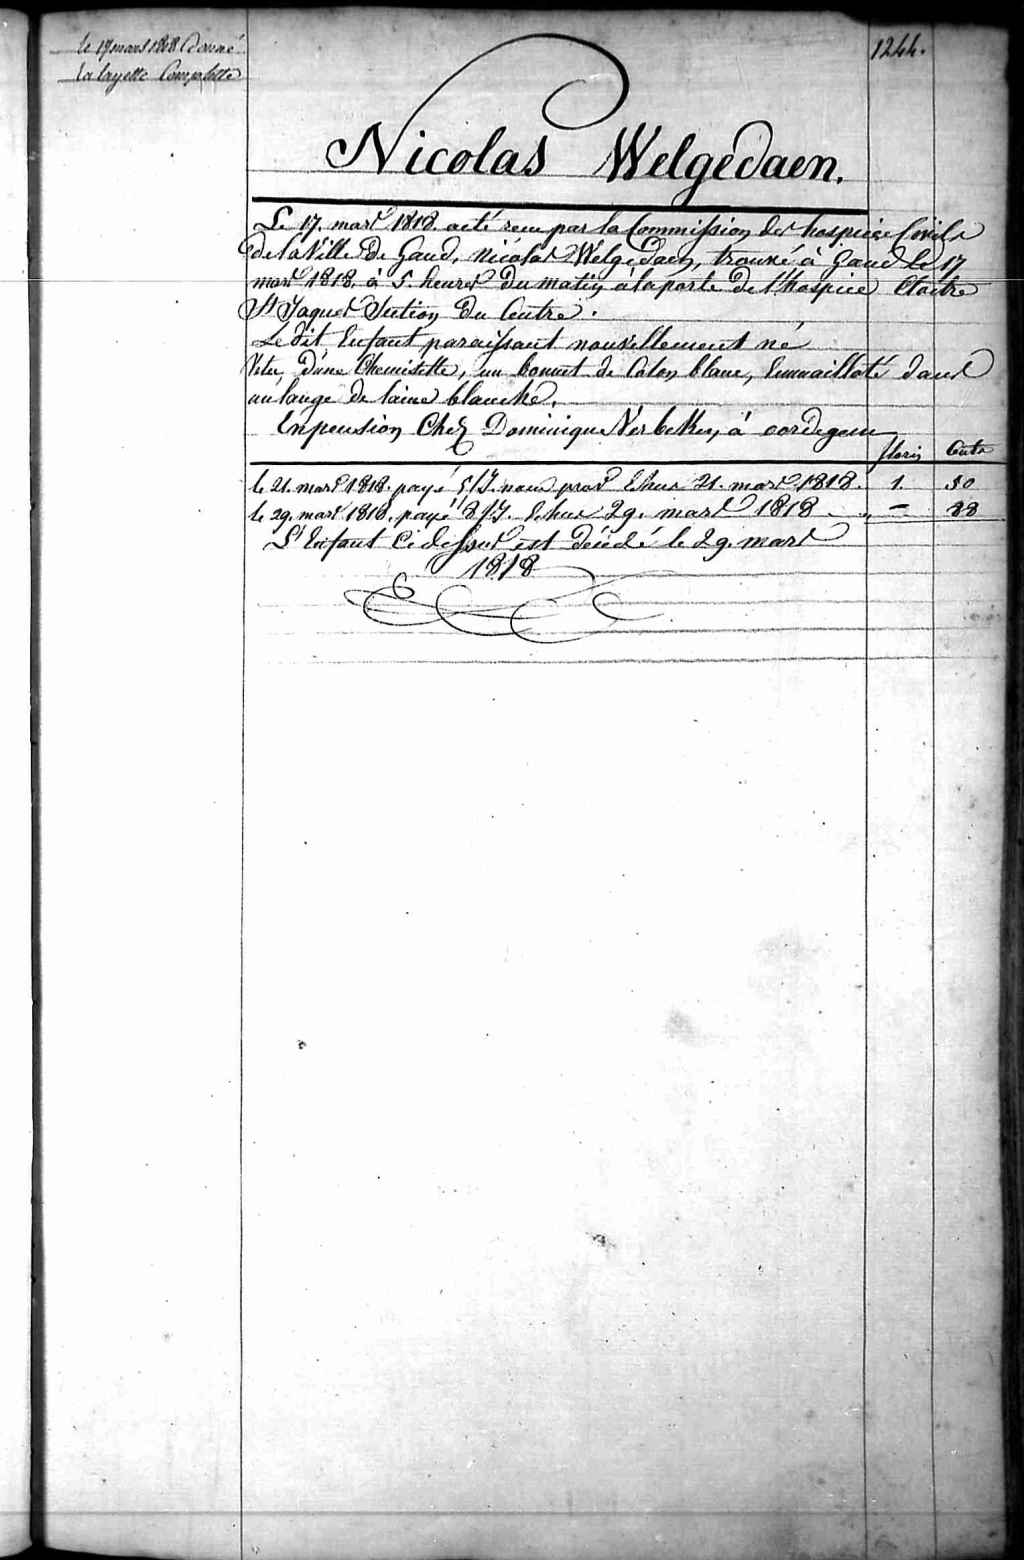 le 17 mars 1818 donné
la layette Complette
1244.
Nicolas Welgedaen.
Le 17. mars 1818. a eté recu par la Commission des hospice Civils
de la Ville de Gand, nicolas Welgedaen, trouvé à Gand le 17
mars 1818. à 5. heures du matin à la porte de l'hospice Cloitre
St Jaques Section du Centre.
Le dit Enfant paraissant nouvellement né
Vetu, d'une Chemisette, un bonnet de Coton blanc, Emmailloté dans
un lange de laine blanche.
En pension Chez Dominique Verbeken, à oordegem
florin Cents
le 21. mars 1818. payé 5/J. 21. mars 1818. 1. 50
le 29. mars 1818. payé 8/J. Echus 29. mars 1818 - 88
L'Enfant Ci dessus est décédé le 29. mars
1818